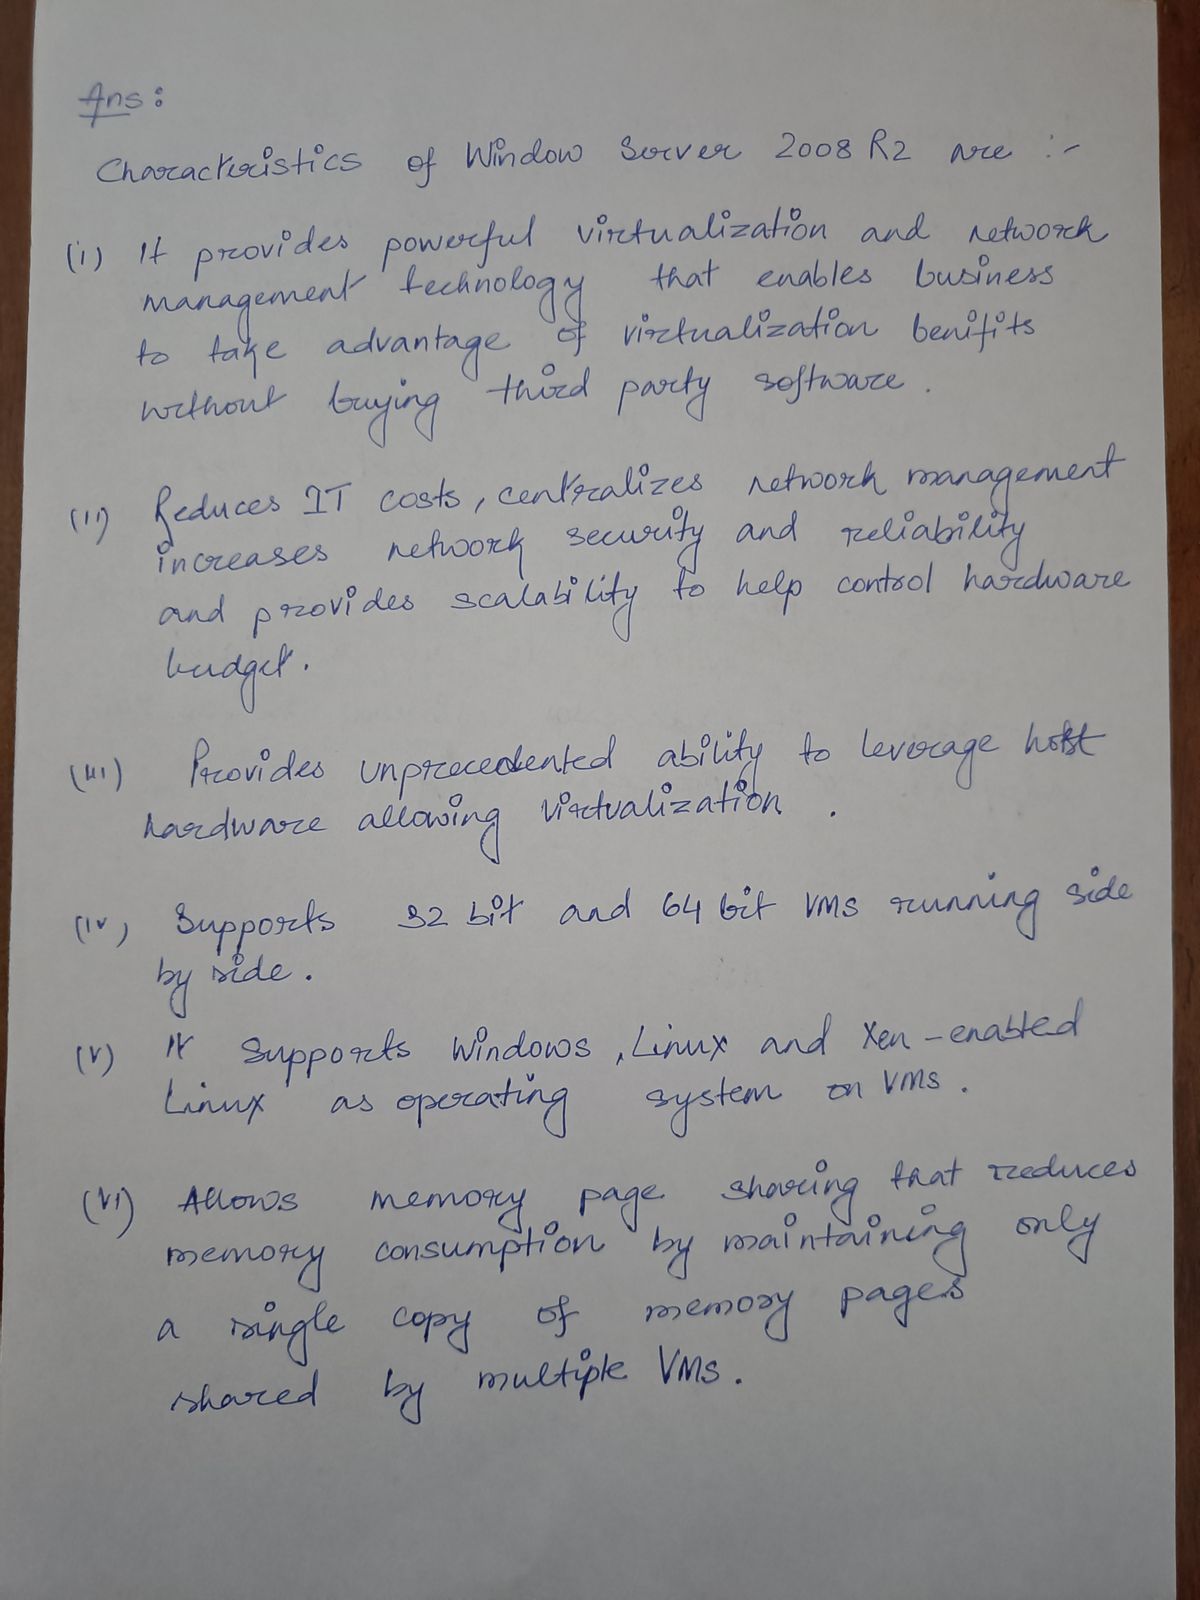 Ans:
Characteristics of Window Server 2008 R2 are :-
(i) It provides powerful virtualization and network
management technology that enables business
to take advantage of virtualization benifits
without buying third party software.
(ii) Reduces IT costs, centralizes network management
increases network security and reliability
and provides scalability to help control hardware
budget.
(iii) Provides unprecedented ability to leverage host
hardware allowing virtualization.
(iv) Supports 32 bit and 64 bit VMs running side
by side.
(v) It supports Windows, Linux and Xen-enabled
Linux as operating system on VMs.
(vi) Allows memory page sharing that reduces
memory consumption by maintaining only
a single copy of memory pages
shared by multiple VMs.